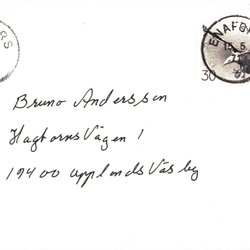 RS
ENAFO
15.5
30
Bruno Andersson
Hagtornsvägen 1
19400 Upplands Väsby